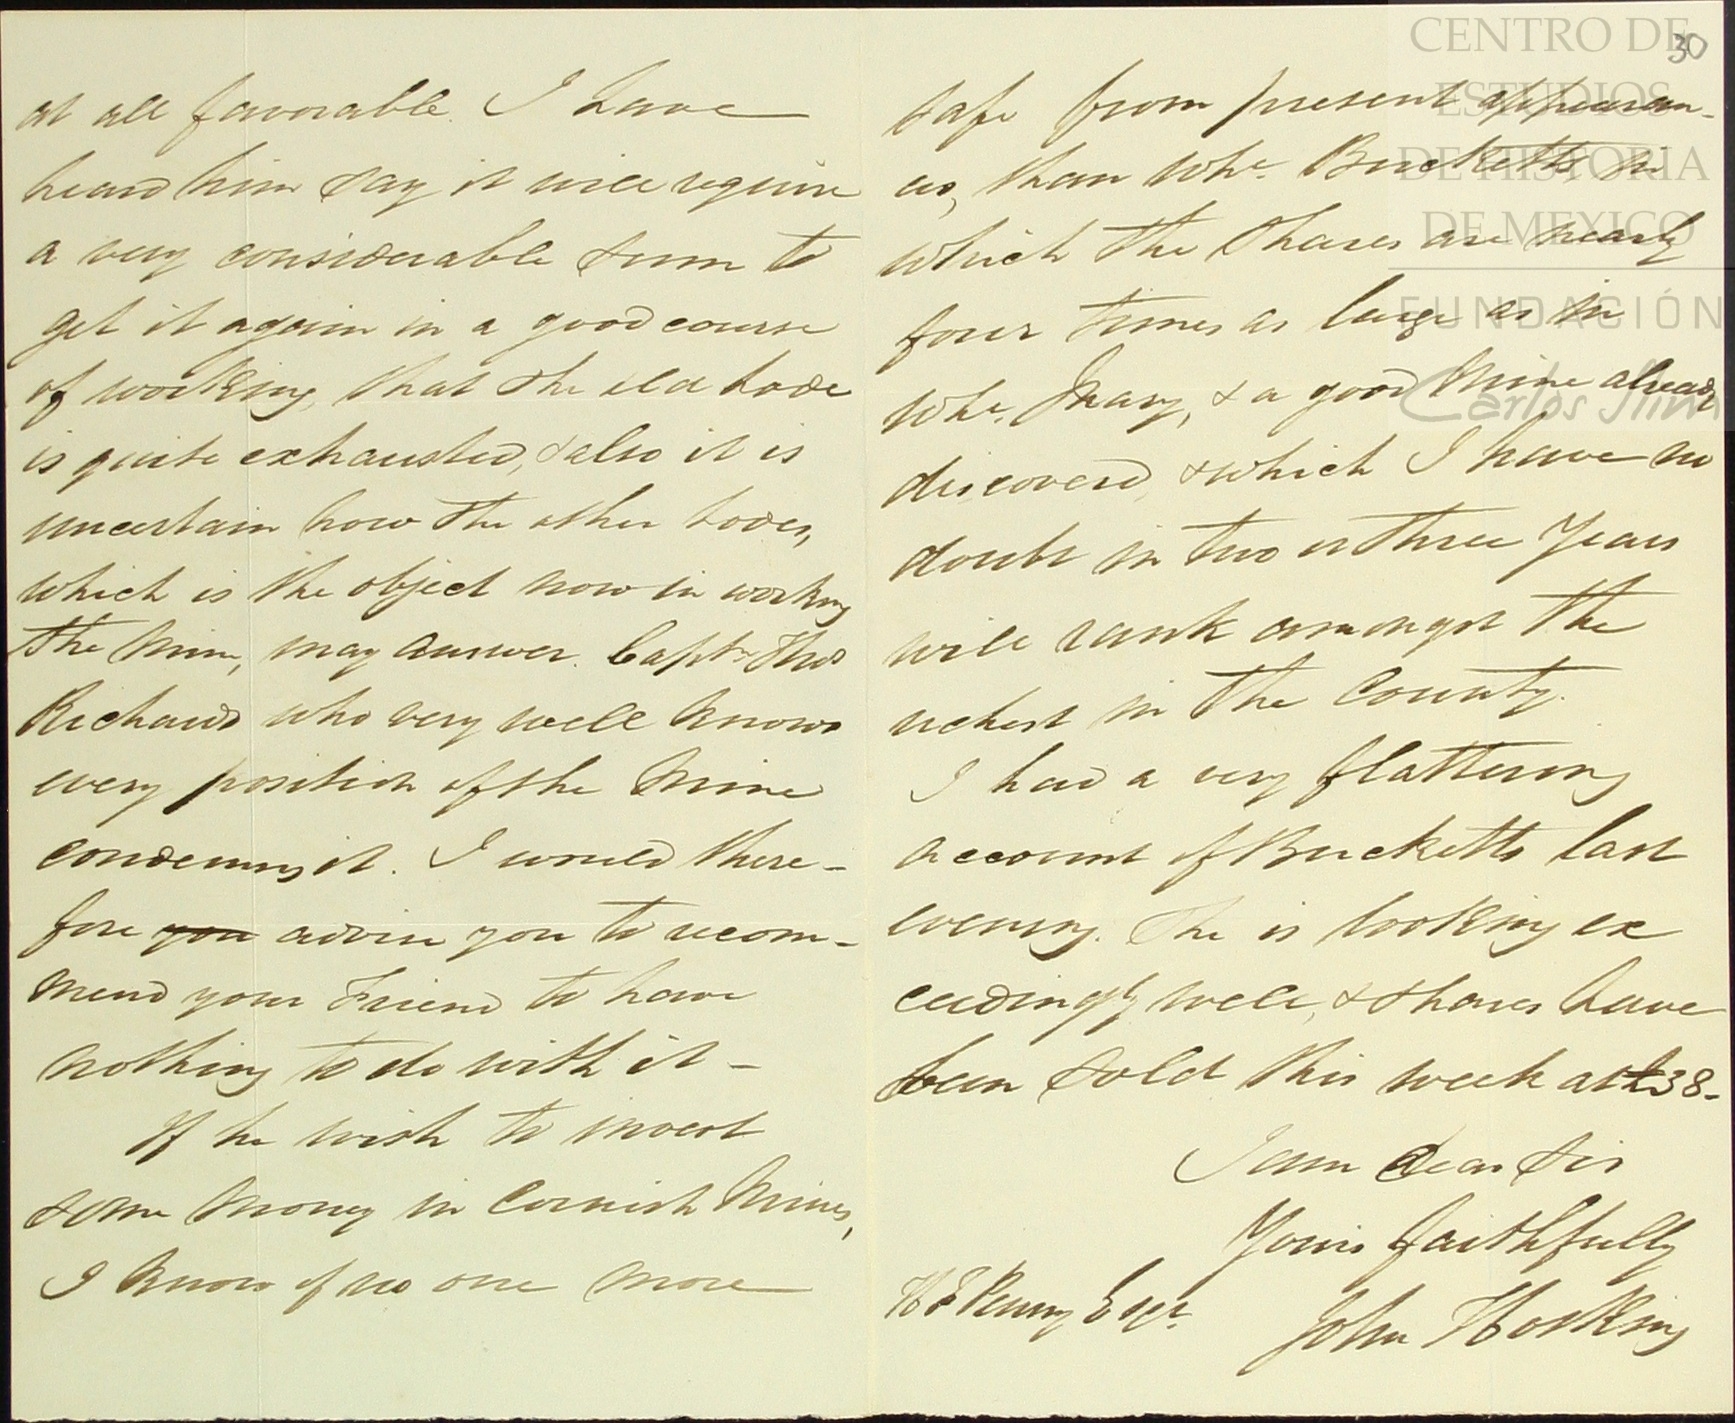 at all favorable. I have
heard him say it will require
a very considerable sum to
get it again in a good course
of working, that the old Lode
is quite exhausted, & also it is
uncertain how the other Lodes,
which is the object now in working
the Mine, may answer. Capt. Thos
Richards who very well knows
every position of the Mine
condemns it. I would there-
fore you advise you to recom-
mend your Friend to have
nothing to do with it -
If he wish to invest
some Money in Cornish Mines,
I know of no one more
30
safe from present appearan-
ces, than Whl. Bucketts, in
which the Shares are nearly
four times as large as in
Whl. Mary, & a good Mine already
discovered, & which I have no
doubt in two or three Years
will rank amongst the
richest in the County.
I had a very flattering
account of Bucketts last
evening. She is looking ex
ceedingly well, & Shares have
been sold this week at £38-
I am Dear Sir
Yours faithfully
John Hosking
Penny Esqr.
CENTRO DE
ESTUDIOS
DE HISTORIA
DE MEXICO
FUNDACIÓN
Carlos Slim